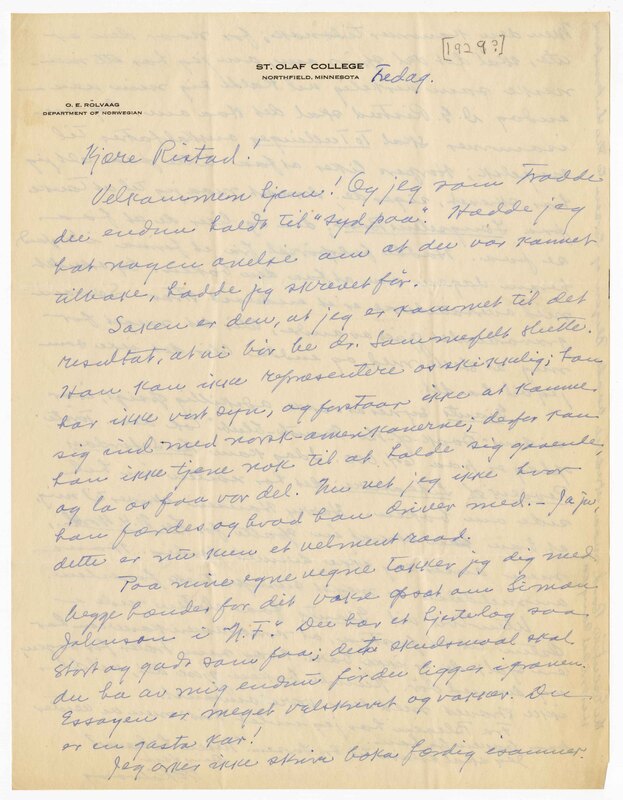 [1929?]
ST. OLAF COLLEGE
NORTHFIELD, MINNESOTA
Fredag.
O. E. RÖLVAAG
DEPARTMENT OF NORWEGIAN
Kjære Ristad!
Velkommen hjem! Og jeg som trodde
du endnu holdt til "syd paa". Hadde jeg
hat nogen anelse om at du var kommet
tilbake, hadde jeg skrevet før.
Saken er den, at jeg er kommet til det
resultat, at vi bør be dr. Sommerfelt slutte.
Han kan ikke repræsentere os skikkelig; han
har ikke vort syn, og forstaar ikke at komme
sig ind med norsk-amerikanerne; derfor kan
han ikke tjene nok til at holde sig gaaende,
og la os faa vor del. Nu vet jeg ikke hvor
han færdes og hvad han driver med. – Ja ja,
dette er nu kun et velment raad.
Paa mine egne vegne takker jeg dig med
begge hænder for dit vakre opsat om Simon
Johnson i "N.F." Du har et hjertelag saa
stort og godt som faa; det skudsmaal skal
du ha av mig endnu før du ligger i graven.
Essayen er meget velskrevet og vakker. Du
er en gasta kar!
Jeg orker ikke skrive boka færdig isommer.